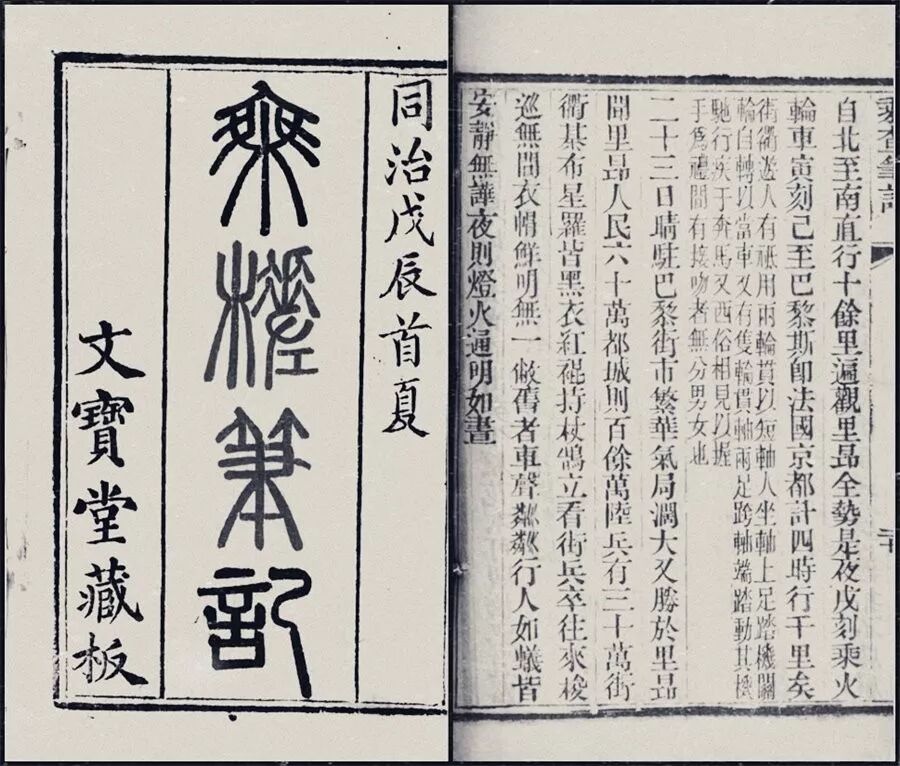 同治戊辰首夏
乘槎筆記
文寶堂藏板
乘查筆記
自北至南直行十餘里遍觀里昂全勢是夜戌刻乘火
輪車寅刻已至巴黎斯即法國京都計四時行千里矣
街衢遊人有祗用兩輪貫以短軸人坐軸上足踏機關
輪自轉以當車又有隻輪貫軸兩足跨軸端踏動其機
馳行疾于奔馬又西俗相見以握
手爲禮間有接吻者無分男女也
二十三日晴駐巴黎街市繁華氣局濶大又勝於里昂
聞里昂人民六十萬都城則百餘萬陸兵有三十萬街
衢基布星羅皆黑衣紅裩持杖鵠立看街兵卒往來梭
巡無間衣帽鮮明無一敝舊者車聲粼粼行人如蟻皆
安靜無譁夜則燈火通明如晝